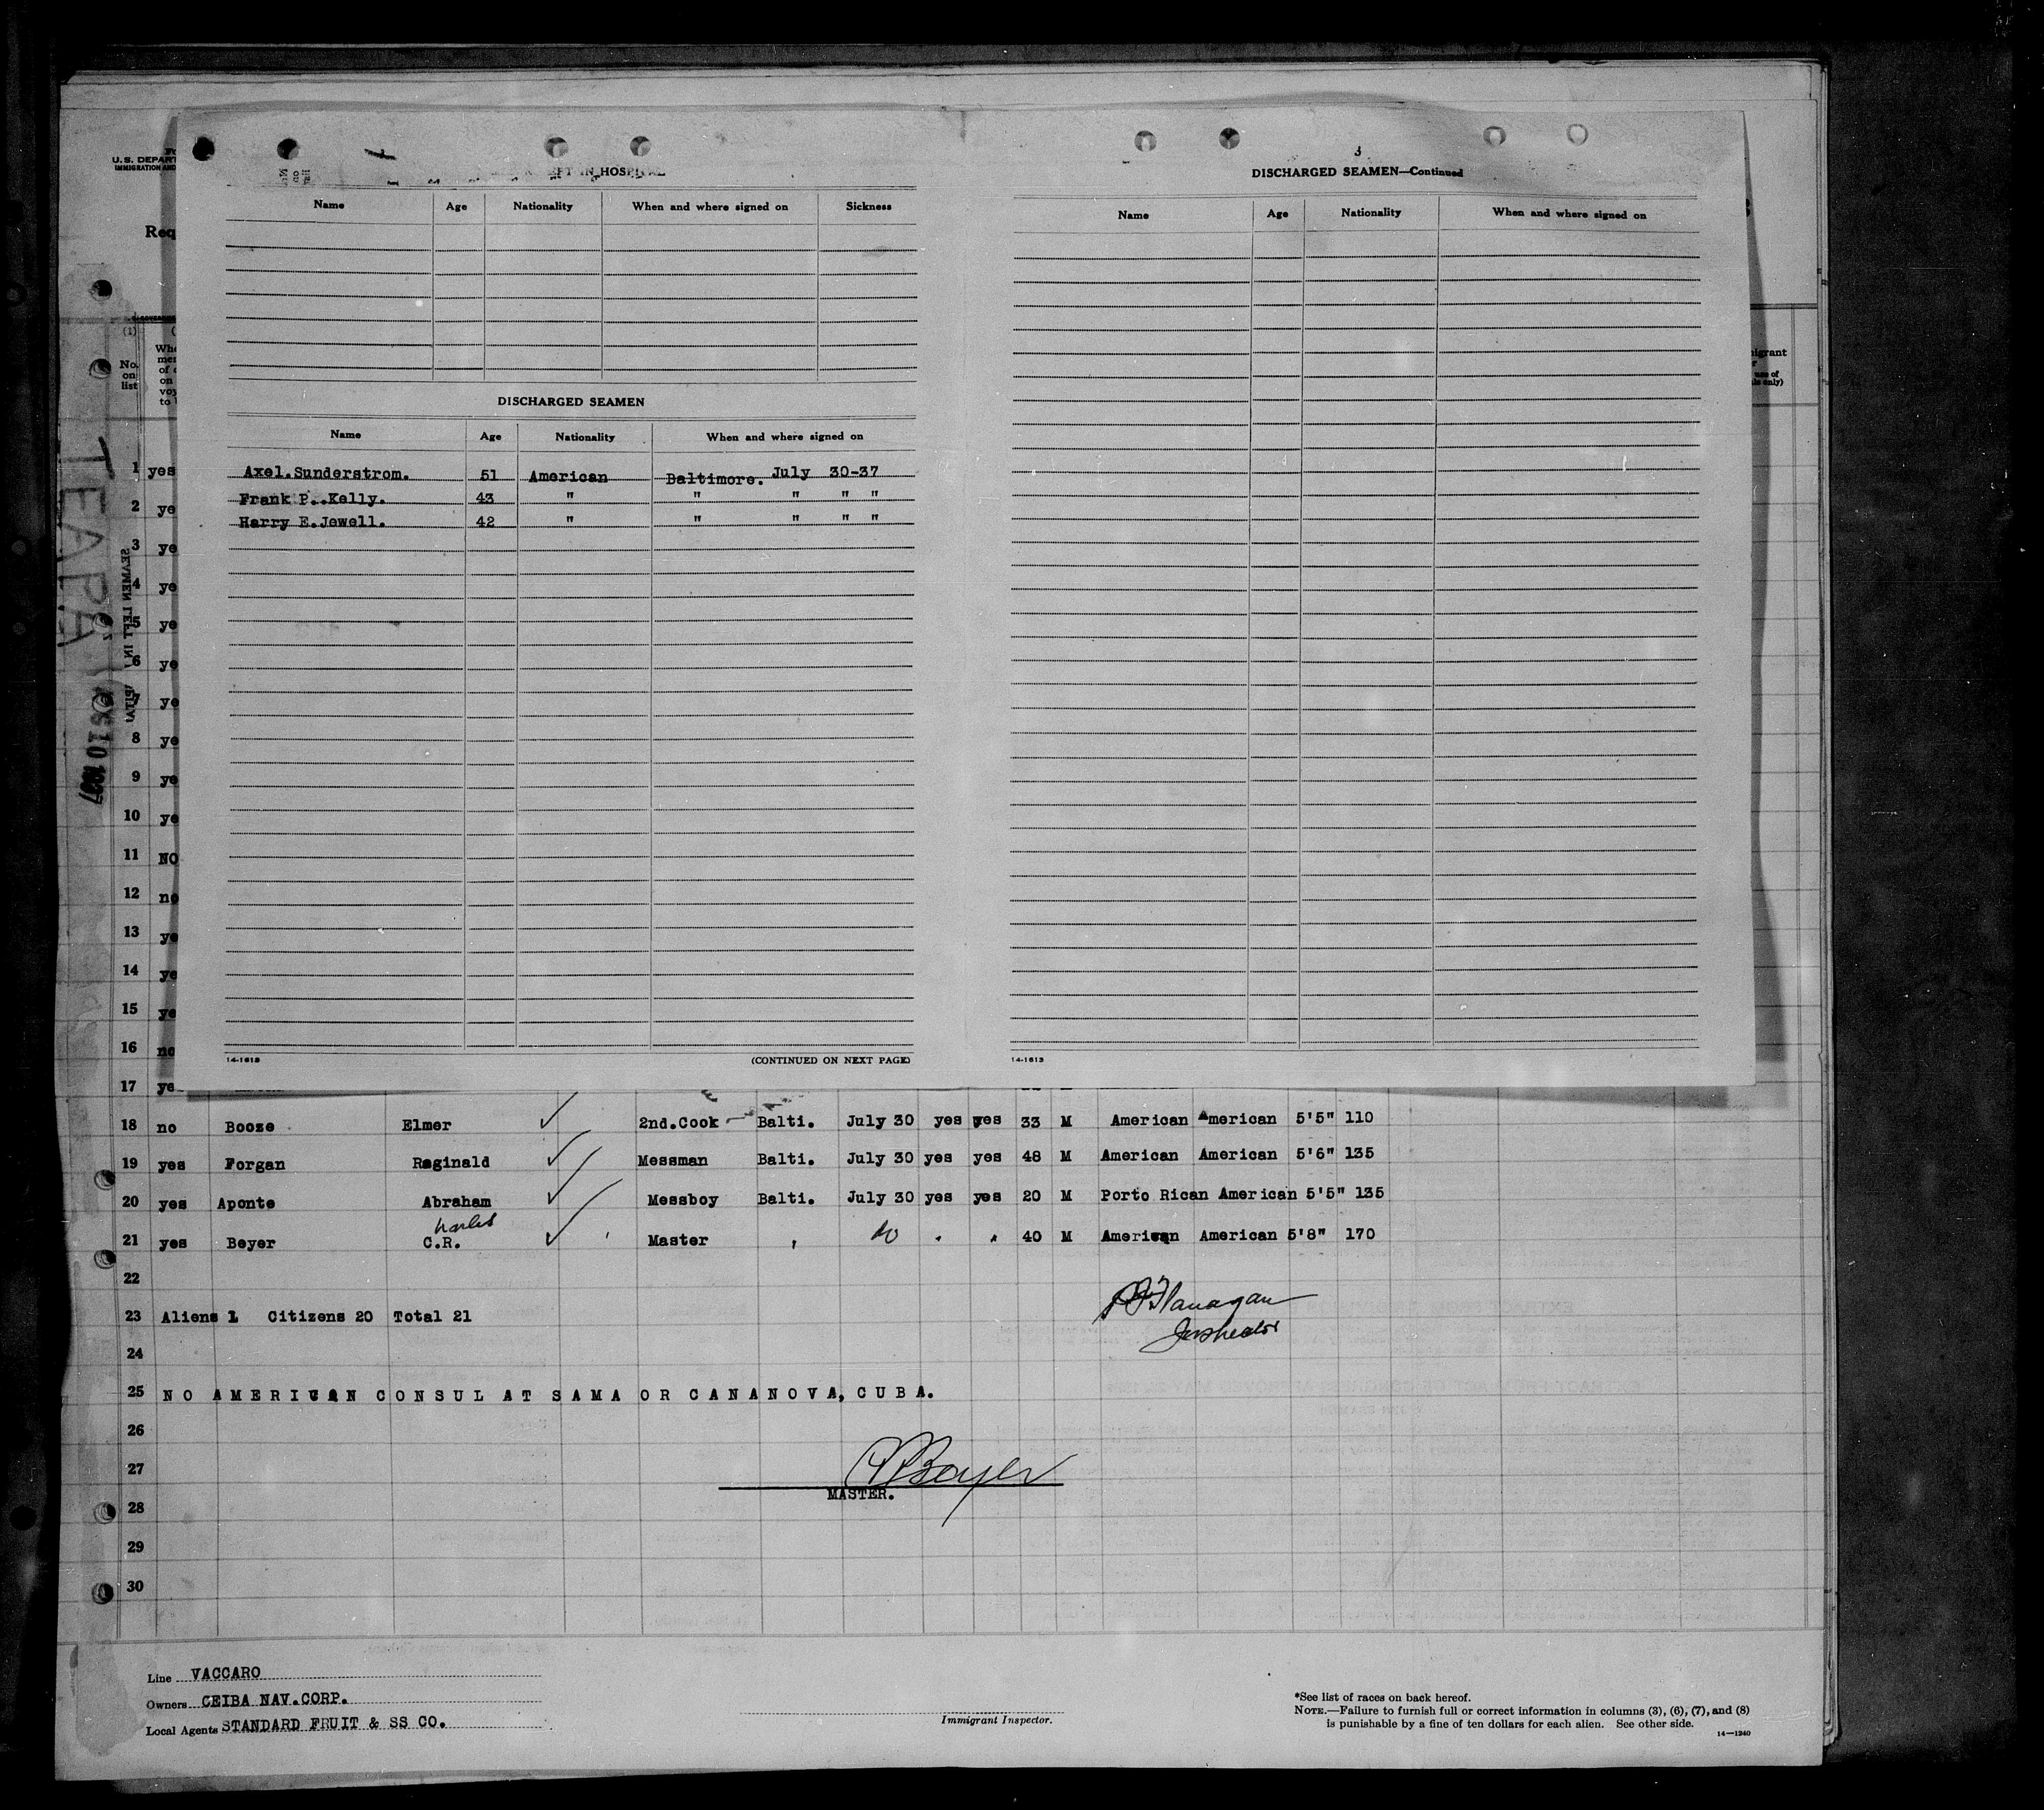 U.S. DEPART
IMMIGRATION AND
Req
LEFT IN HOSPITAL
Name Age Nationality When and where signed on Sickness
DISCHARGED SEAMEN
Name Age Nationality When and where signed on
Axel.Sunderstrom. 51 American Baltimore. July 30-37
Frank P..Kelly. 43 " " " " "
Harry E.Jewell. 42 " " " " "
14-1613 (CONTINUED ON NEXT PAGE)
3
DISCHARGED SEAMEN—Continued
Name Age Nationality When and where signed on
14-1613
TEAPA
SEAMEN LEFT IN
10 1937
(1)
No. on list
migrant
use of
only)
1 yes
2 ye
3 ye
4 ye
5 ye
6 ye
7 ye
8 ye
9 ye
10 ye
11 NO
12 no
13 ye
14 ye
15 ye
16 no
17 ye
18 no Booze Elmer 2nd.Cook Balti. July 30 yes yes 33 M American American 5'5" 110
19 yes Forgan Reginald Messman Balti. July 30 yes yes 48 M American American 5'6" 135
20 yes Aponte Abraham Messboy Balti. July 30 yes yes 20 M Porto Rican American 5'5" 135
21 yes Beyer C.R. Master 40 M American American 5'8" 170
22
23 Aliens 1 Citizens 20 Total 21
Flanagan
Inspector
24
25 NO AMERICAN CONSUL AT SAMA OR CANANOVA, CUBA.
26
27 CRBeyer
28 MASTER.
29
30
Line VACCARO
Owners CEIBA NAV.CORP.
Local Agents STANDARD FRUIT & SS CO.
Immigrant Inspector.
*See list of races on back hereof.
NOTE.—Failure to furnish full or correct information in columns (3), (6), (7), and (8)
is punishable by a fine of ten dollars for each alien. See other side.
14-1240